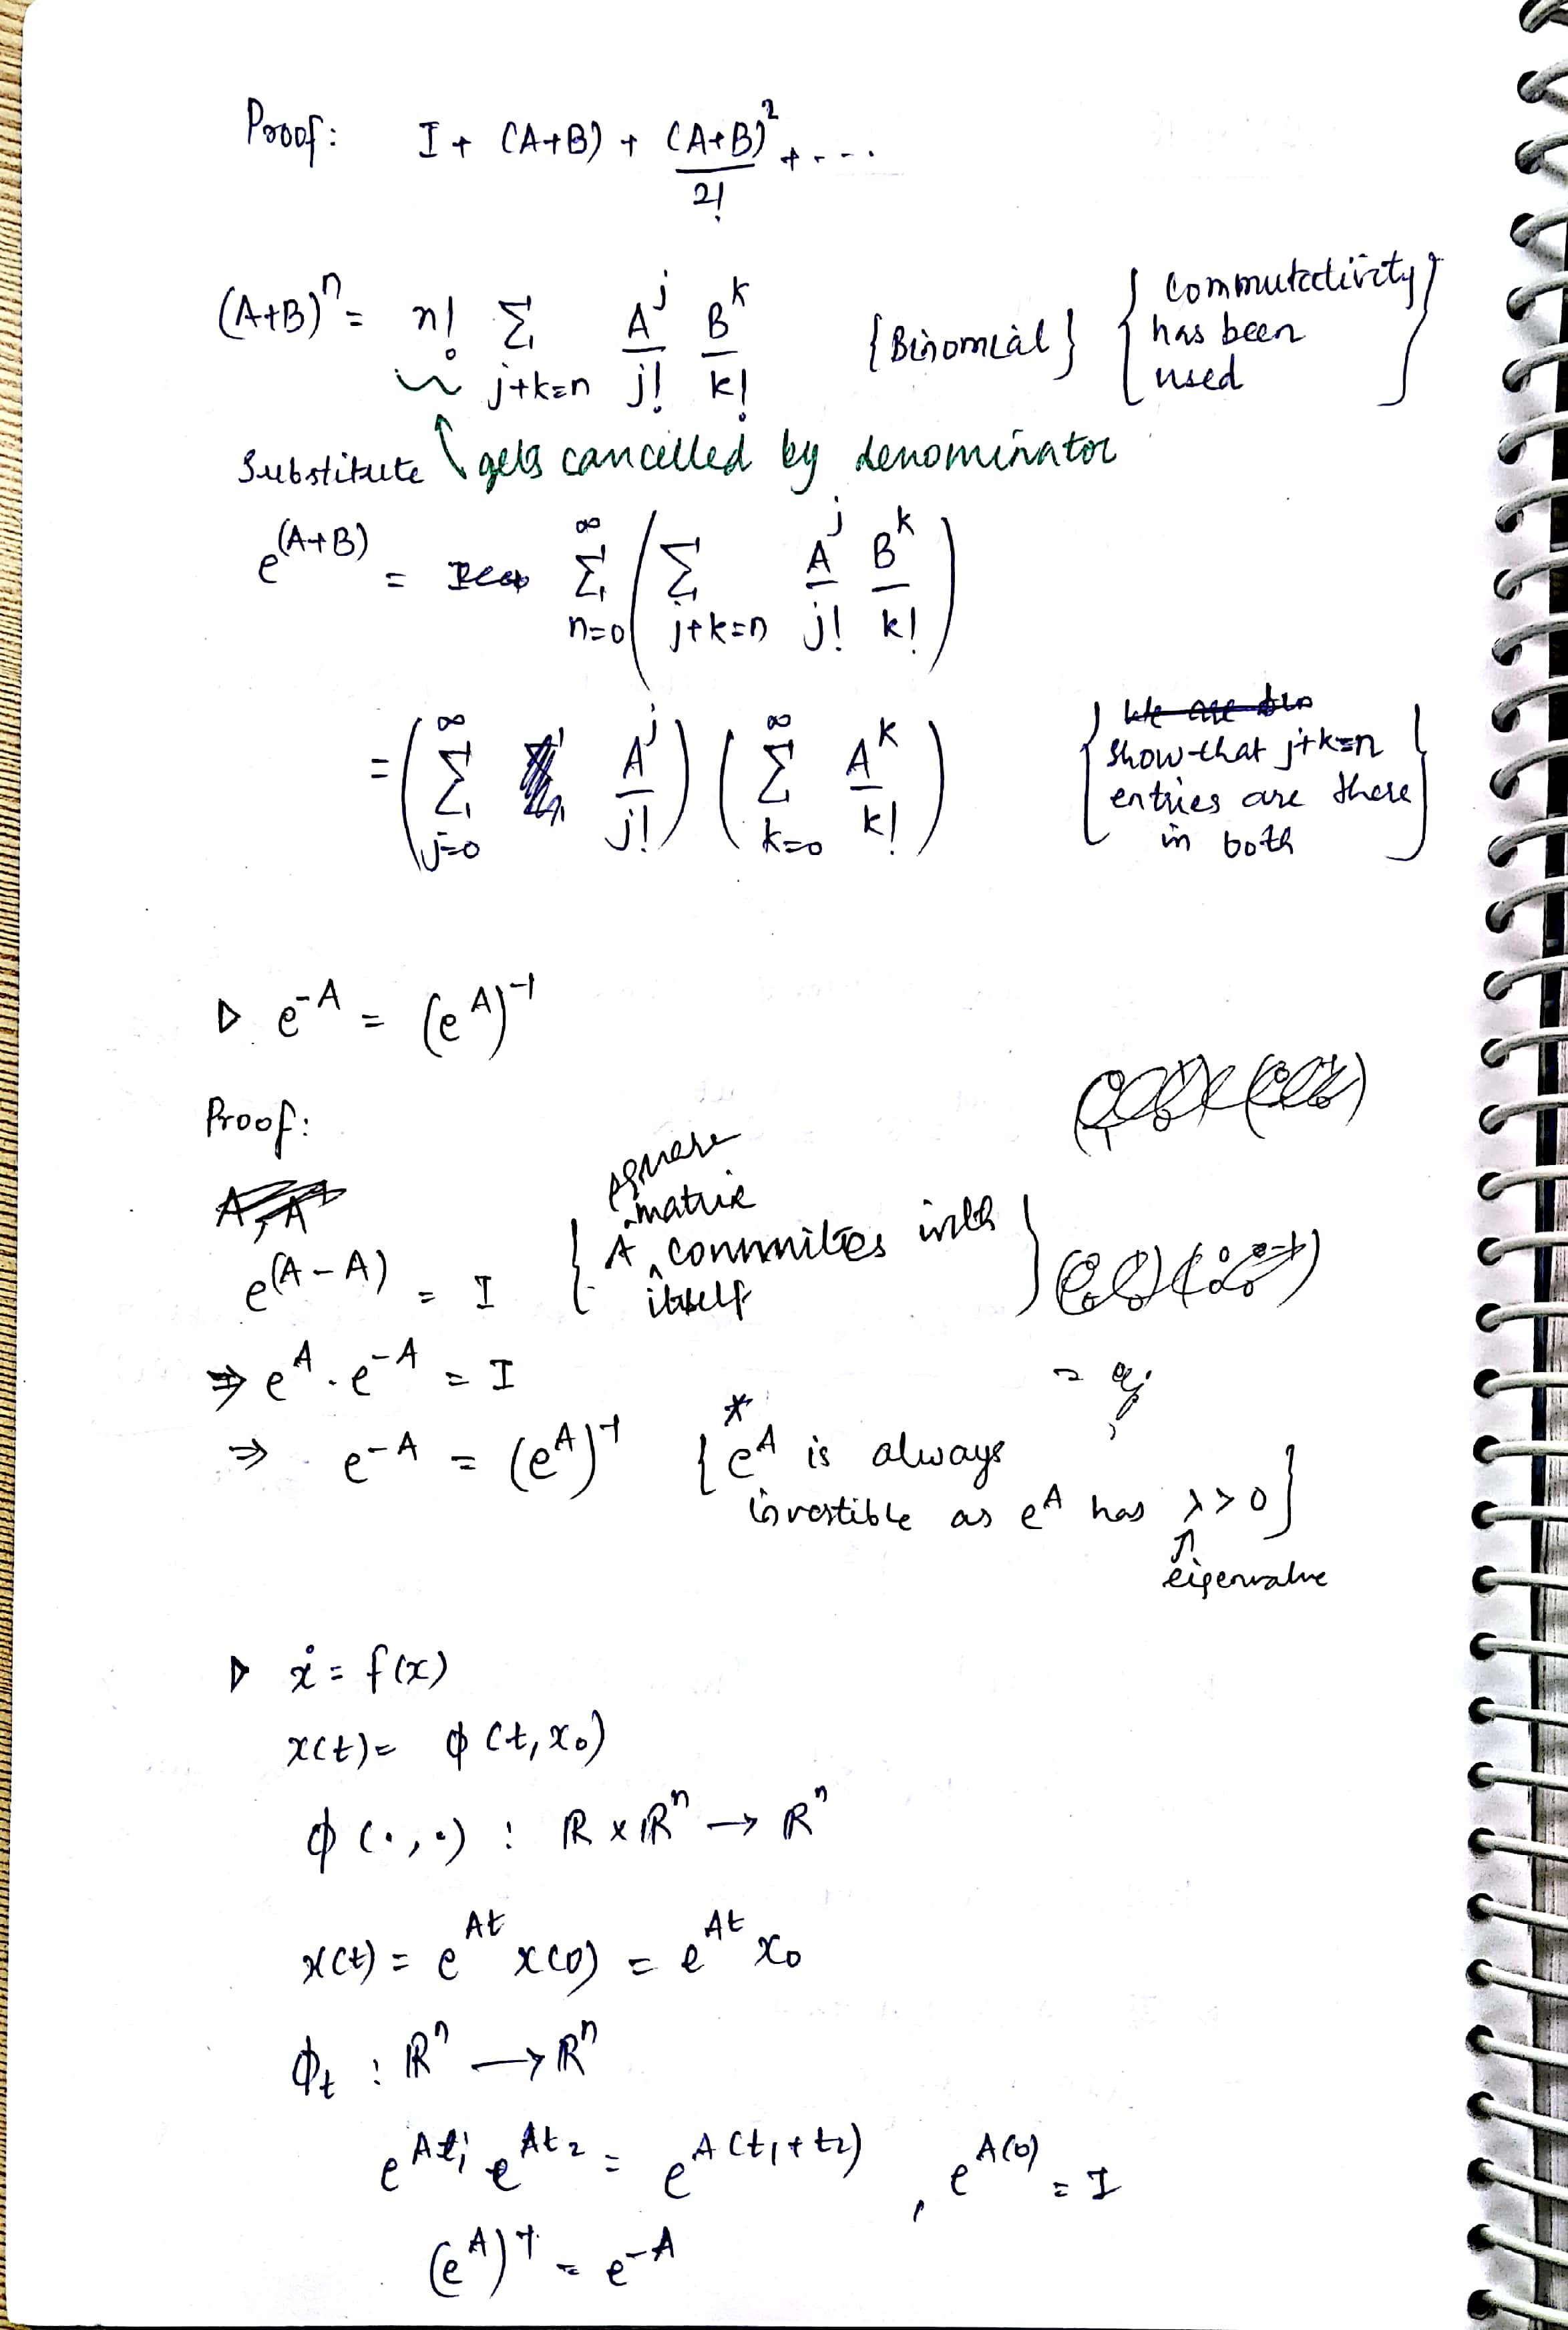 Proof: I + (A+B) + (A+B)²/2! + ....
(A+B)ⁿ = n! Σ_{j+k=n} A^j/j! B^k/k! {Binomial} {Commutativity has been used}
Substitute ↑ gets cancelled by denominator
e^(A+B) = Σ_{n=0}^{∞} ( Σ_{j+k=n} A^j/j! B^k/k! )
= ( Σ_{j=0}^{∞} A^j/j! ) ( Σ_{k=0}^{∞} A^k/k! ) {show that j+k=n entries are there in both}
▷ e^{-A} = (e^A)^{-1}
Proof:
e^(A-A) = I {A square matrix commutes with itself}
⇒ e^A . e^{-A} = I
⇒ e^{-A} = (e^A)^{-1} {* e^A is always invertible as e^A has λ > 0}
↑ eigenvalue
▷ ẋ = f(x)
x(t) = ϕ(t, x₀)
ϕ(·,·) : ℝ × ℝⁿ → ℝⁿ
x(t) = e^{At} x(0) = e^{At} x₀
ϕ_t : ℝⁿ → ℝⁿ
e^{At₁} e^{At₂} = e^{A(t₁+t₂)} , e^{A(0)} = I
(e^A)^{-1} = e^{-A}